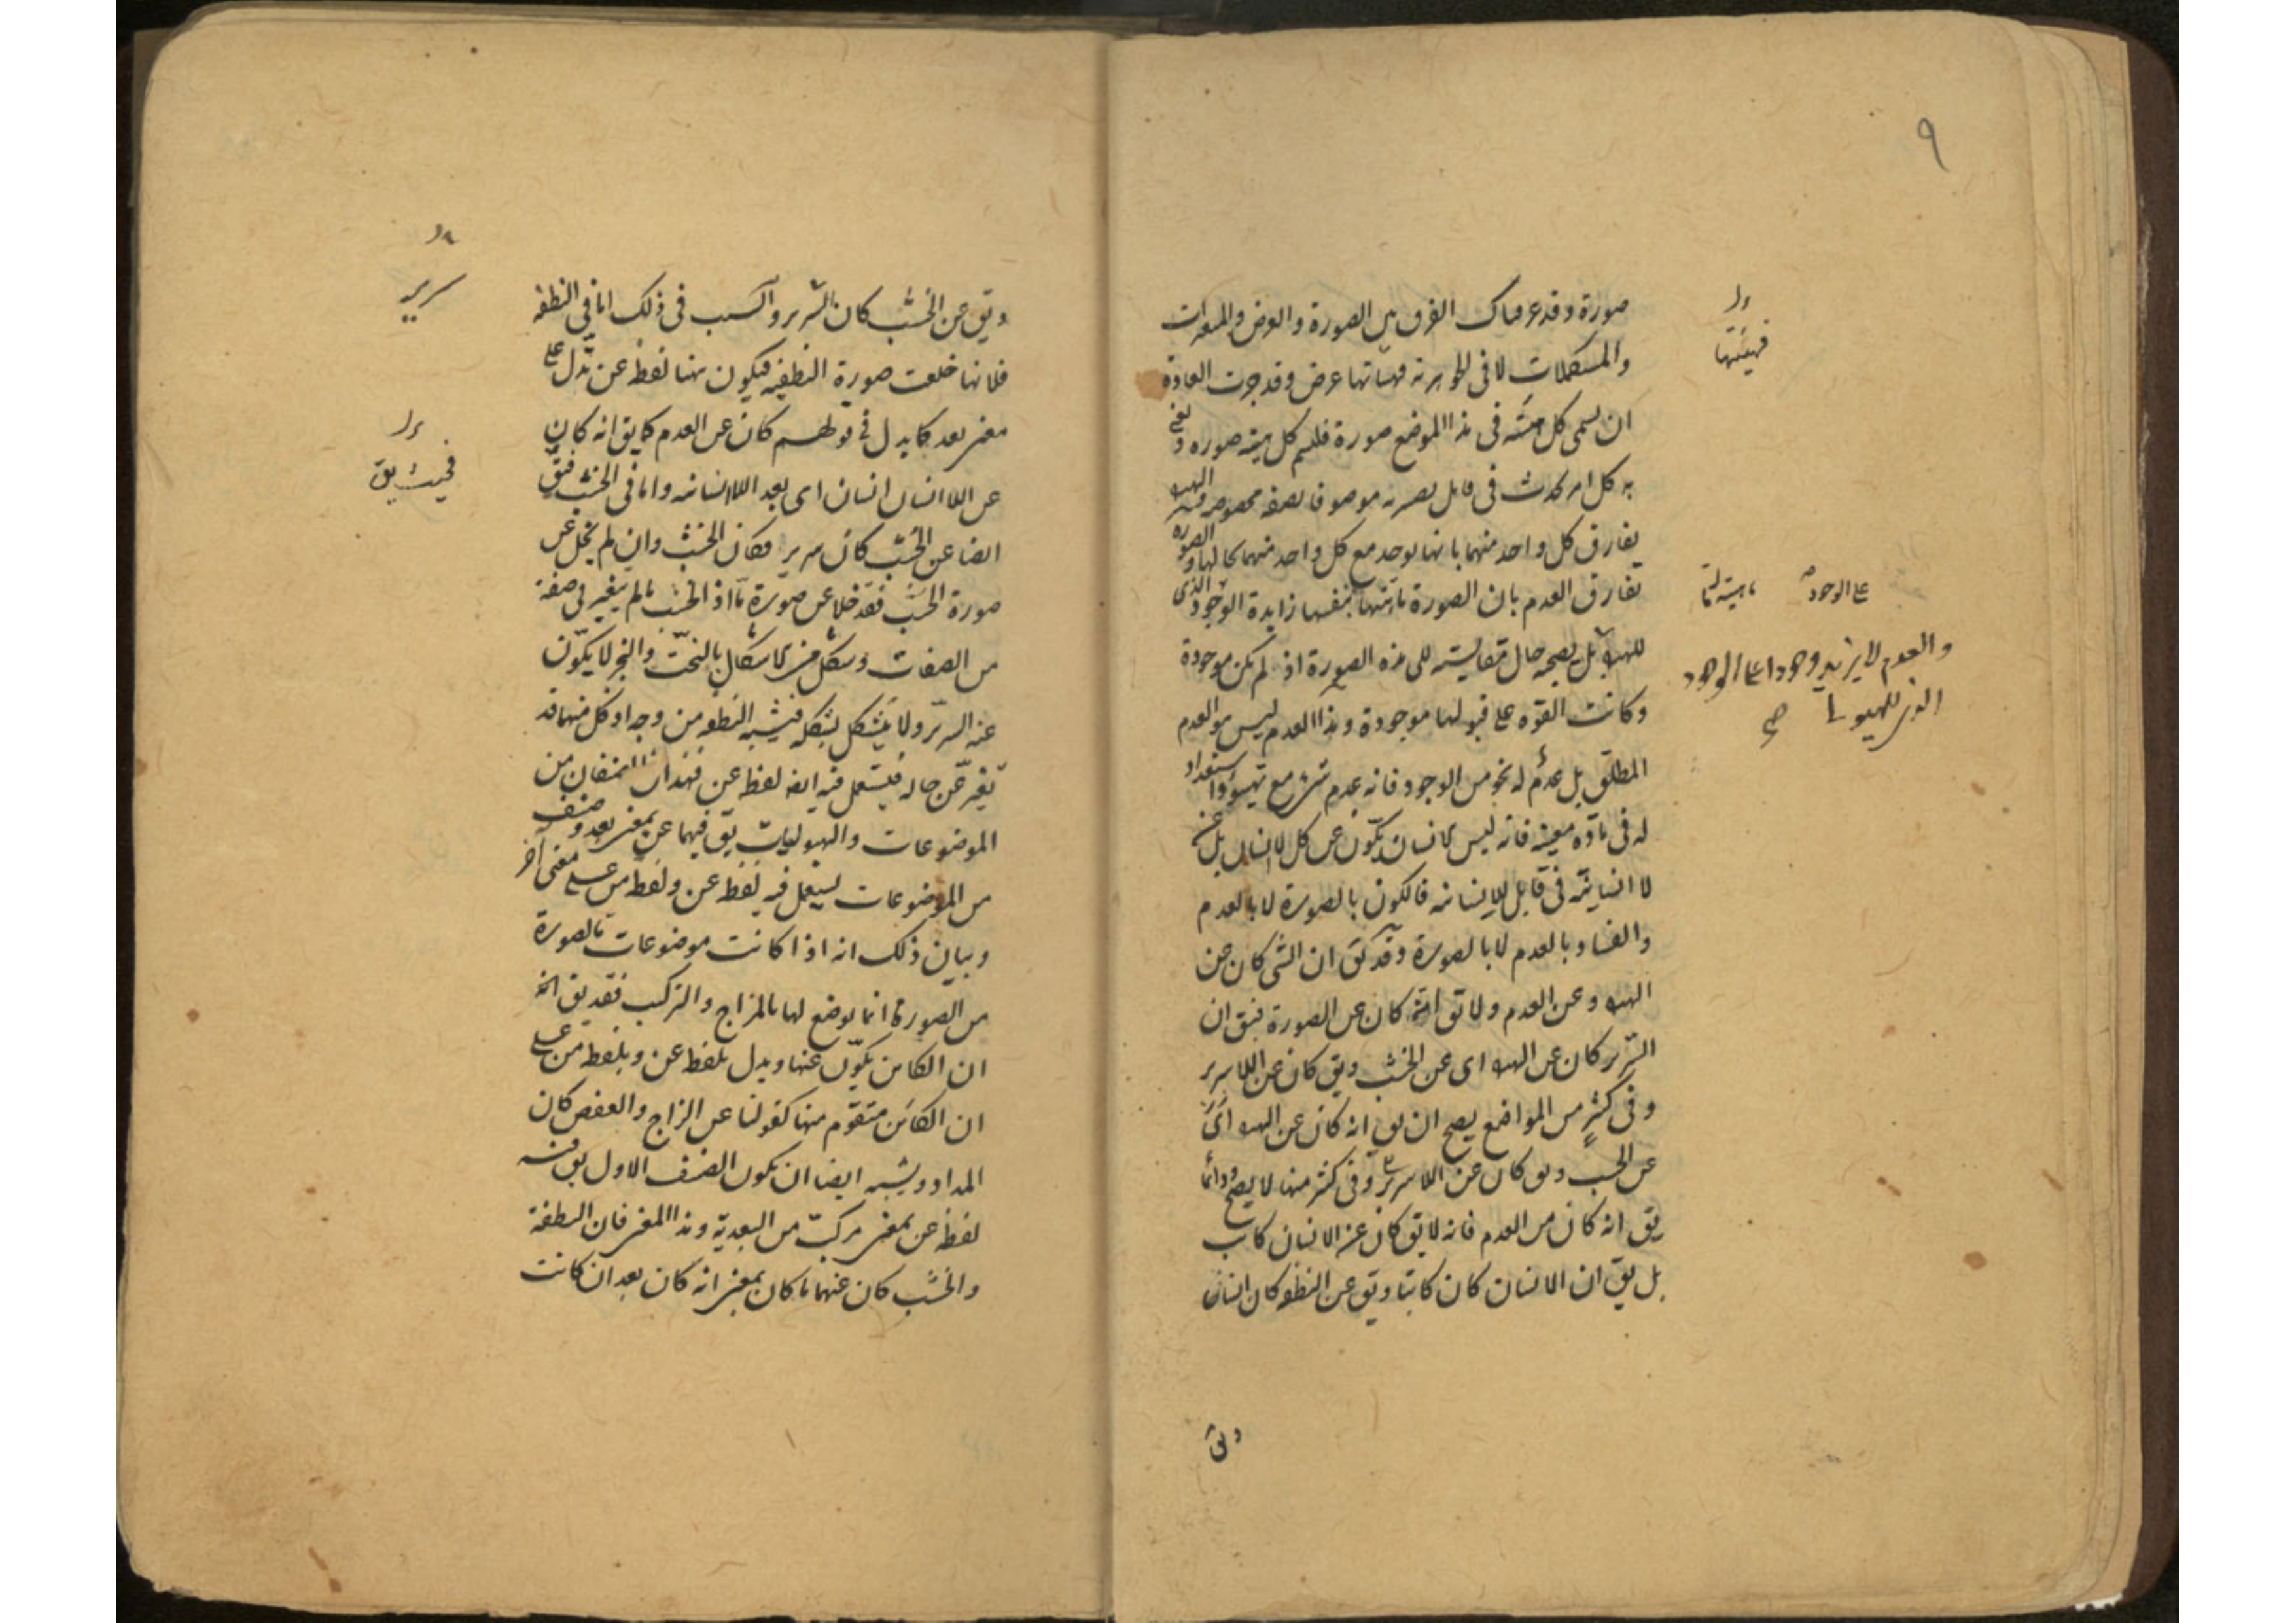 ٩
صورة وقد عرفناك الفرق بين الصورة والعرض والمتغيرات
والمستكملات لا فى الجوهرية فهيئاتها عرض وقد جرت العادة
ان يسمى كل هيئة فى هذا الموضع صورة فلنسم كل هيئة صورة ونعنى
به كل امر يحدث فى قابل يصير له موصوفا بصفة مخصوصة
يفارق كل واحد منهما بانها توجد مع كل واحد منهما كالها والصورة
تفارق العدم بان الصورة بنفسها زايدة الوجود الذى
للهيولى بل يصحبه حال مقايسته الى هذه الصورة اذ لم تكن موجودة
وكانت القوة على قبولها موجودة وهذا العدم ليس هو العدم
المطلق بل عدم له نحو من الوجود فانه عدم شئ مع تهيؤ واستعداد
له فى مادة معينة فانه ليس الانسان يتكون عن كل لا انسان بل عن
لا انسانية فى قابل للانسانية فالكون بالصورة لا بالعدم
والفساد بالعدم لا بالصورة وقد يق ان الشى كان عن
الهيولى وعن العدم ولا يق انه كان عن الصورة فيق ان
السرير كان عن الهيولى اى عن الخشب ويق كان عن اللا سرير
وفى كثير من المواضع يصح ان يق انه كان عن الهيولى اى
عن الخشب ويق كان عن اللا سرير وفى كثير منها لا يصح ودائما
يق انه كان من العدم فانه لا يق كان عن الانسان كاتب
بل يق ان الانسان كان كاتبا ويق عن النطفة كان انسان
ويق
فهيئتها
على الوجود
والعدم لا يزيد وجودا على الوجود
الذى للهيولى
صح
ويق عن الخشب كان السرير والسبب فى ذلك اما فى النطفة
فلانها خلعت صورة النطفية فيكون هنا لفظ عن تدل على
معنى بعد كما يدل فى قولهم كان عن العدم كما يق انه كان
عن اللا انسان انسان اى بعد اللا انسانية واما فى الخشب فيق
ايضا عن الخشب كان سرير فكان الخشب وان لم يخل عن
صورة الخشب فقد خلا عن صورة ما اذ الخشب ما لم يتغير فى صفة
من الصفات وشكل من الاشكال بالنحت والنجر لا يكون
عنه السرير ولا يتشكل بشكله فيشبه النطفة من وجه اذ كل منهما قد
تغير عن حاله فيستعمل فيه ايضا لفظ عن فهذان الصنفان من
الموضوعات والهيوليات يق فيهما عن بمعنى بعد وصنف
من الموضوعات يستعمل فيه لفظ عن ولفظ من على معنى آخر
وبيان ذلك انه اذا كانت موضوعات بالصورة
من الصورة انما توضع لها بالمزاج والتركيب فقد يق
ان الكائن يكون عنها ويدل بلفظ عن وبلفظ من على
ان الكائن متقوم منها كقولنا عن الزاج والعفص كان
المداد ويشبه ايضا ان يكون الصنف الاول يق فيه
لفظ عن بمعنى مركب من البعدية وهذا المعنى فان النطفة
والخشب كان عنهما ما كان بمعنى انه كان بعد ان كانت
سرير
فحيث يق